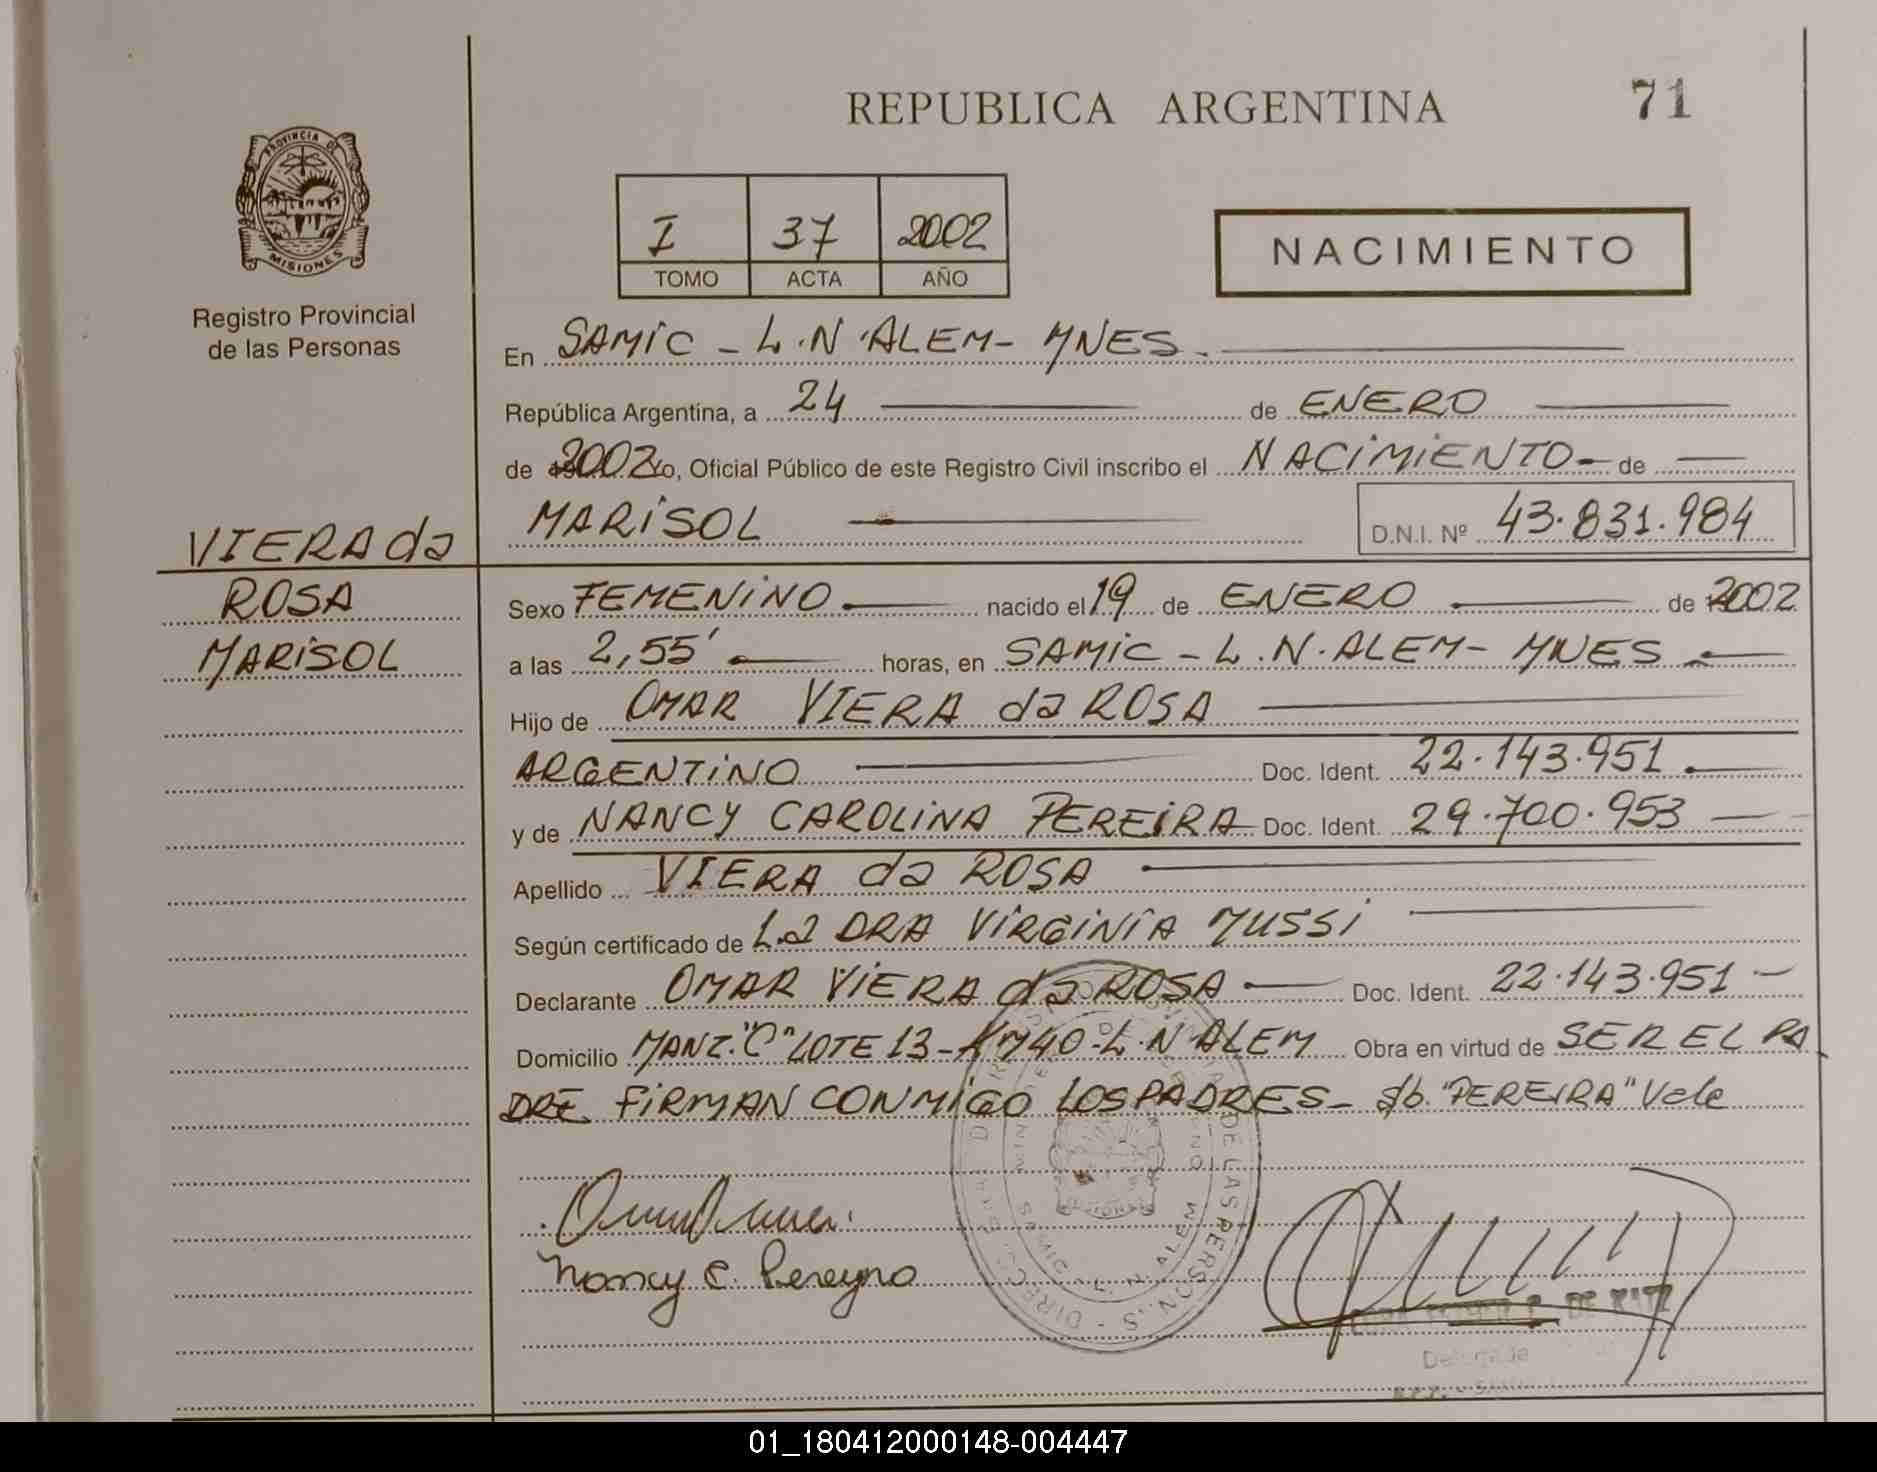 REPUBLICA ARGENTINA
71
PROVINCIA DE
MISIONES
Registro Provincial
de las Personas
I 37 2002
TOMO ACTA AÑO
NACIMIENTO
En SAMiC - L.N.ALEM- MNES.
República Argentina, a 24 de ENERO
de 2002 yo, Oficial Público de este Registro Civil inscribo el NACiMiENTO de
MARiSOL D.N.I. Nº 43.831.984
VIERA da
ROSA
MARiSOL
Sexo FEMENiNO nacido el 19 de ENERO de 2002
a las 2,55' horas, en SAMiC - L.N.ALEM- MNES
Hijo de OMAR VIERA da ROSA
ARGENTiNO Doc. Ident. 22.143.951
y de NANCY CAROLiNA PEREiRA Doc. Ident. 29.700.953
Apellido VIERA da ROSA
Según certificado de La DRA ViRGiNiA MUSSi
Declarante OMAR ViERA da ROSA Doc. Ident. 22.143.951
Domicilio MANZ."C" LOTE 13 - KM40-L.N ALEM Obra en virtud de SER EL PA
DRE FiRMAN CONMiGO LOS PADRES- S/b. "PEREiRA" Vale
Nancy C. Pereyra
DE LAS PERSONAS
SAMIC L N ALEM
DE KATZ
Delegada
01_180412000148-004447